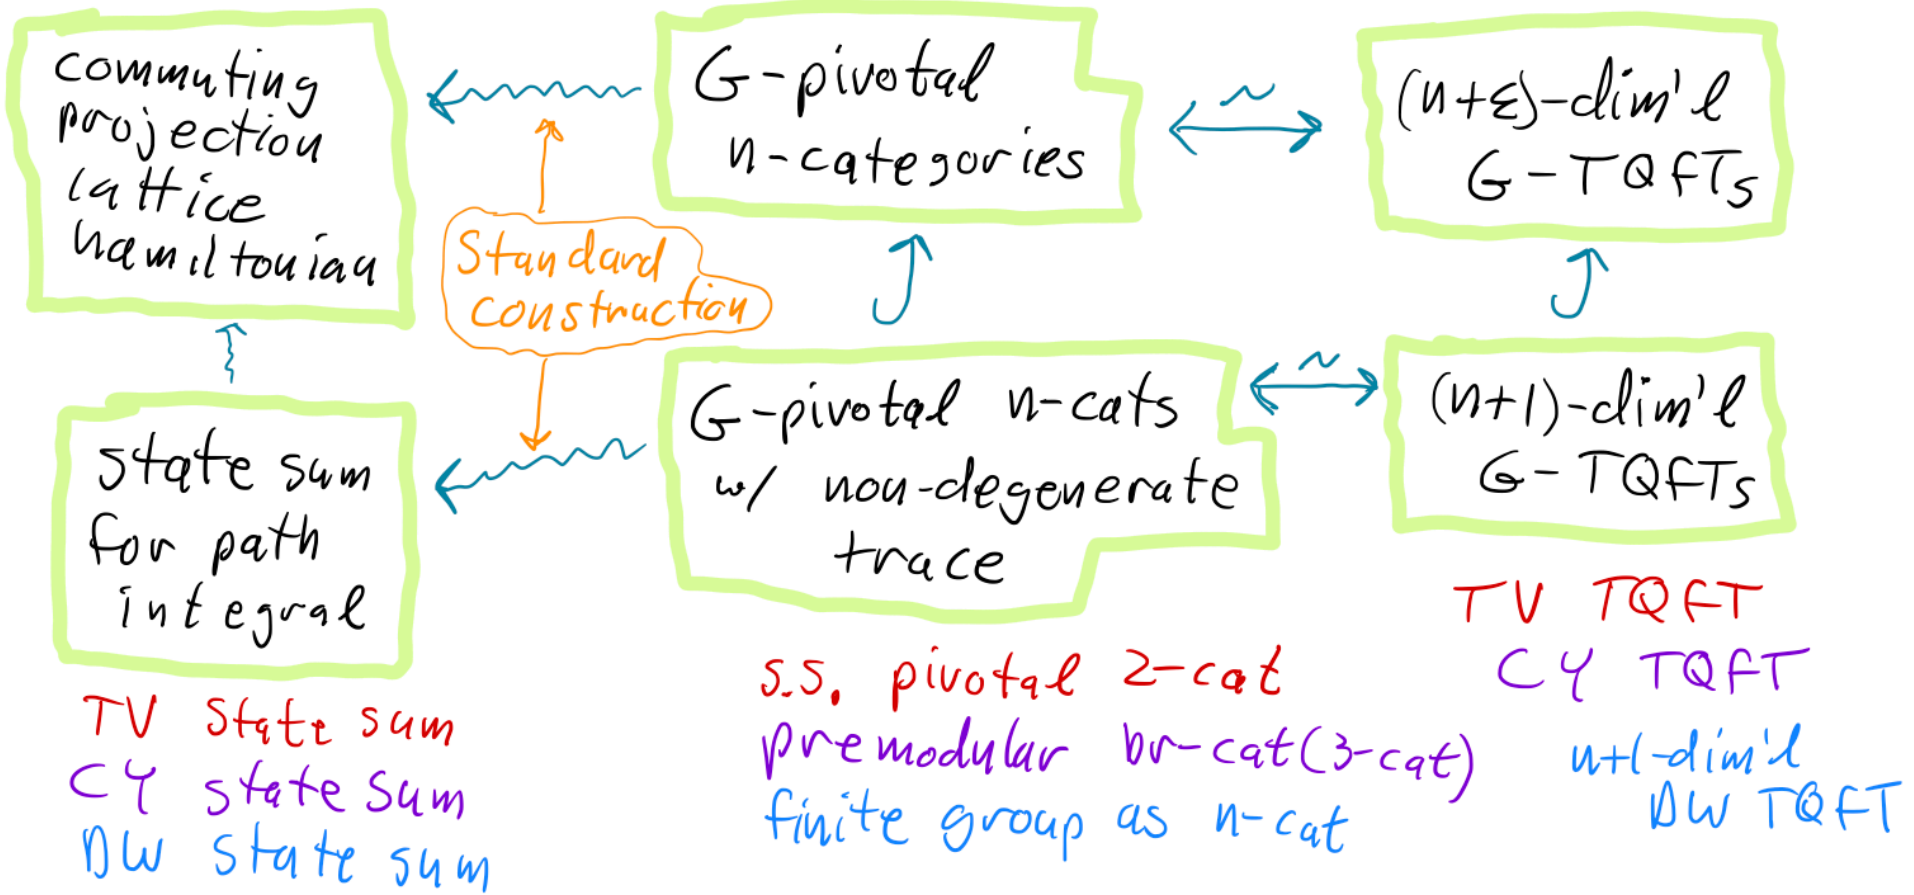 commuting
projection
lattice
hamiltonian
G-pivotal
n-categories
~
(n+ε)-dim'l
G-TQFTs
Standard
construction
state sum
for path
integral
G-pivotal n-cats
w/ non-degenerate
trace
~
(n+1)-dim'l
G-TQFTs
TV state sum
CY state sum
DW state sum
s.s. pivotal 2-cat
premodular br-cat(3-cat)
finite group as n-cat
TV TQFT
CY TQFT
n+1-dim'l
DW TQFT